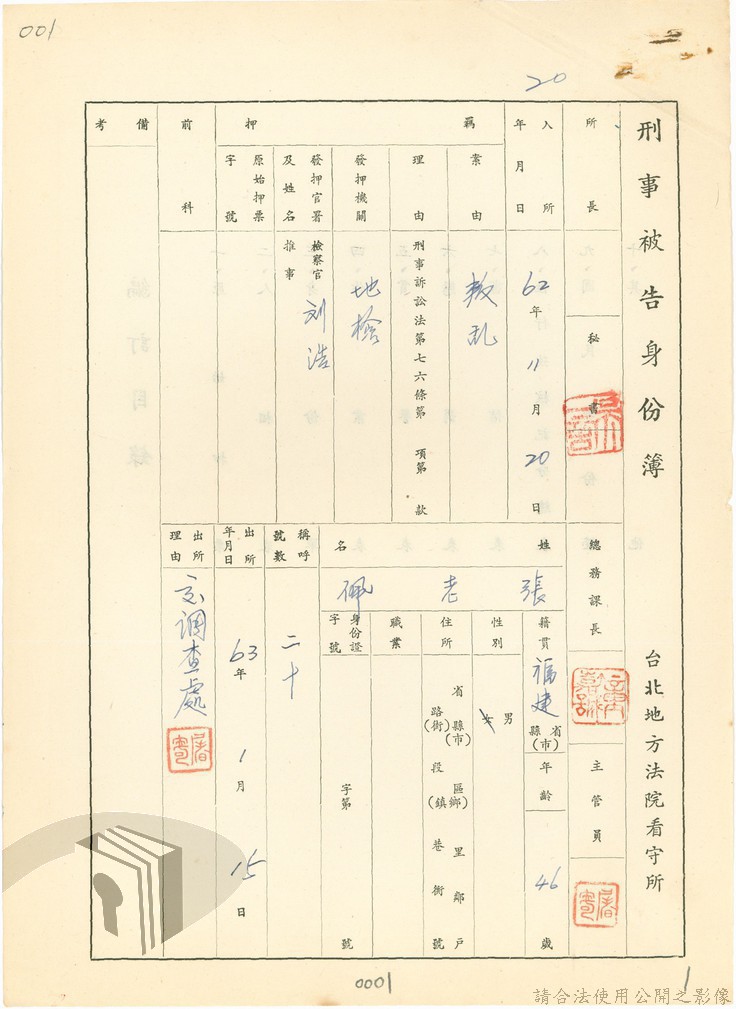 001
20
刑事被告身份簿
台北地方法院看守所
所長
秘書
總務課長
主管員
入所年月日
62年11月20日
羈押
案由
叛乱
理由
刑事訴訟法第七六條第 項第 款
發押機關
地檢
發押官署及姓名
檢察官
推事
刘浩
原始押票字號
前科
備考
姓名
張老佩
籍貫
福建省縣(市)
年齡
46歲
性別
男
女
住所
省縣(市)區鄉(鎮)里鄰戶
路(街)段巷衖號
職業
身份證字號
字第 號
稱呼號數
二十
出所年月日
63年1月15日
出所理由
交調查處
0001
1
請合法使用公開之影像